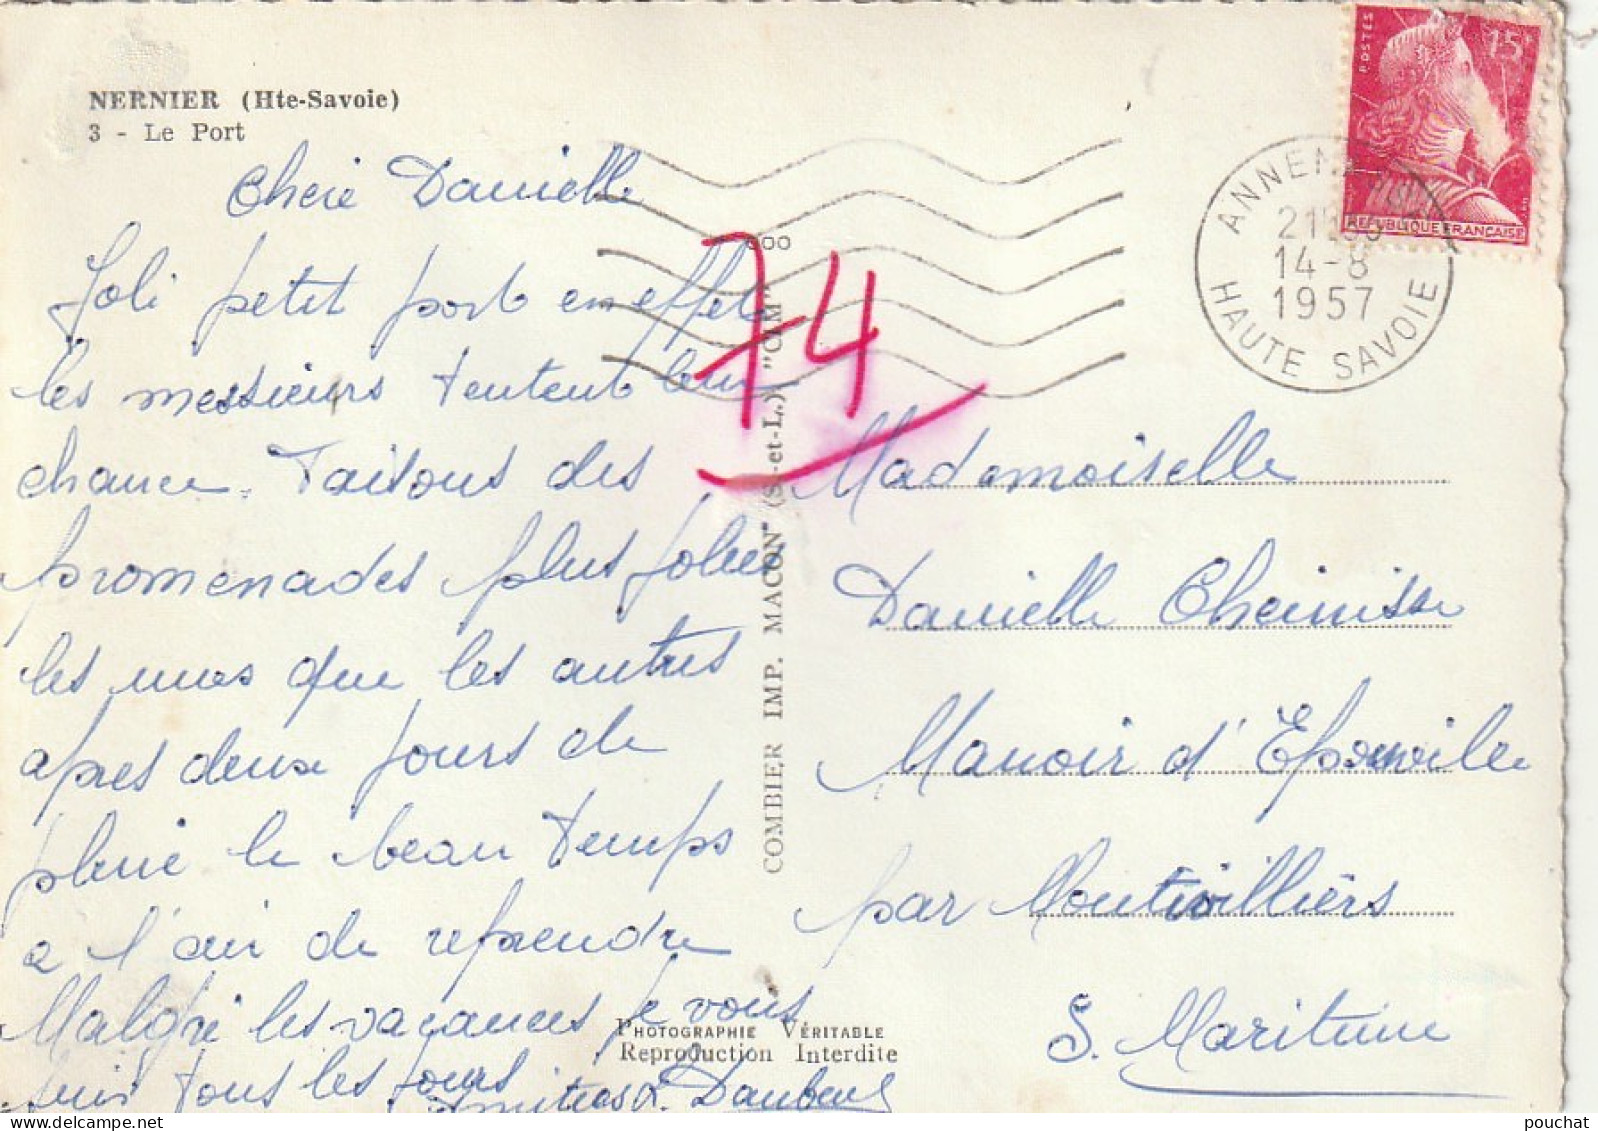 NERNIER (Hte-Savoie)
3 - Le Port
Cherie Danielle
Joli petit port en effet
les messieurs tentent leur
chance. Faisons des
promenades plus jolies
les unes que les autres
après deux jours de
pluie le beau temps
a l'air de reprendre
Malgré les vacances je vous
suis tous les jours
Amitiés
COMBIER IMP. MACON (S.-et-L.) "CIM"
74
POSTES
15F
REPUBLIQUE FRANCAISE
ANNEMASSE
14-8
1957
HAUTE SAVOIE
Mademoiselle
Danielle Cheinisse
Manoir d'Epouville
par Montivilliers
S. Maritime
PHOTOGRAPHIE VÉRITABLE
Reproduction Interdite
pouchat